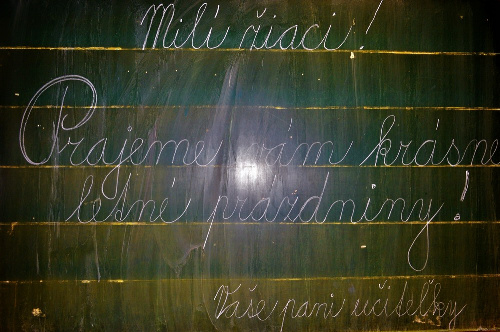 Milí žiaci!
Prajeme vám krásne
letné prázdniny!
Vaše pani učiteľky